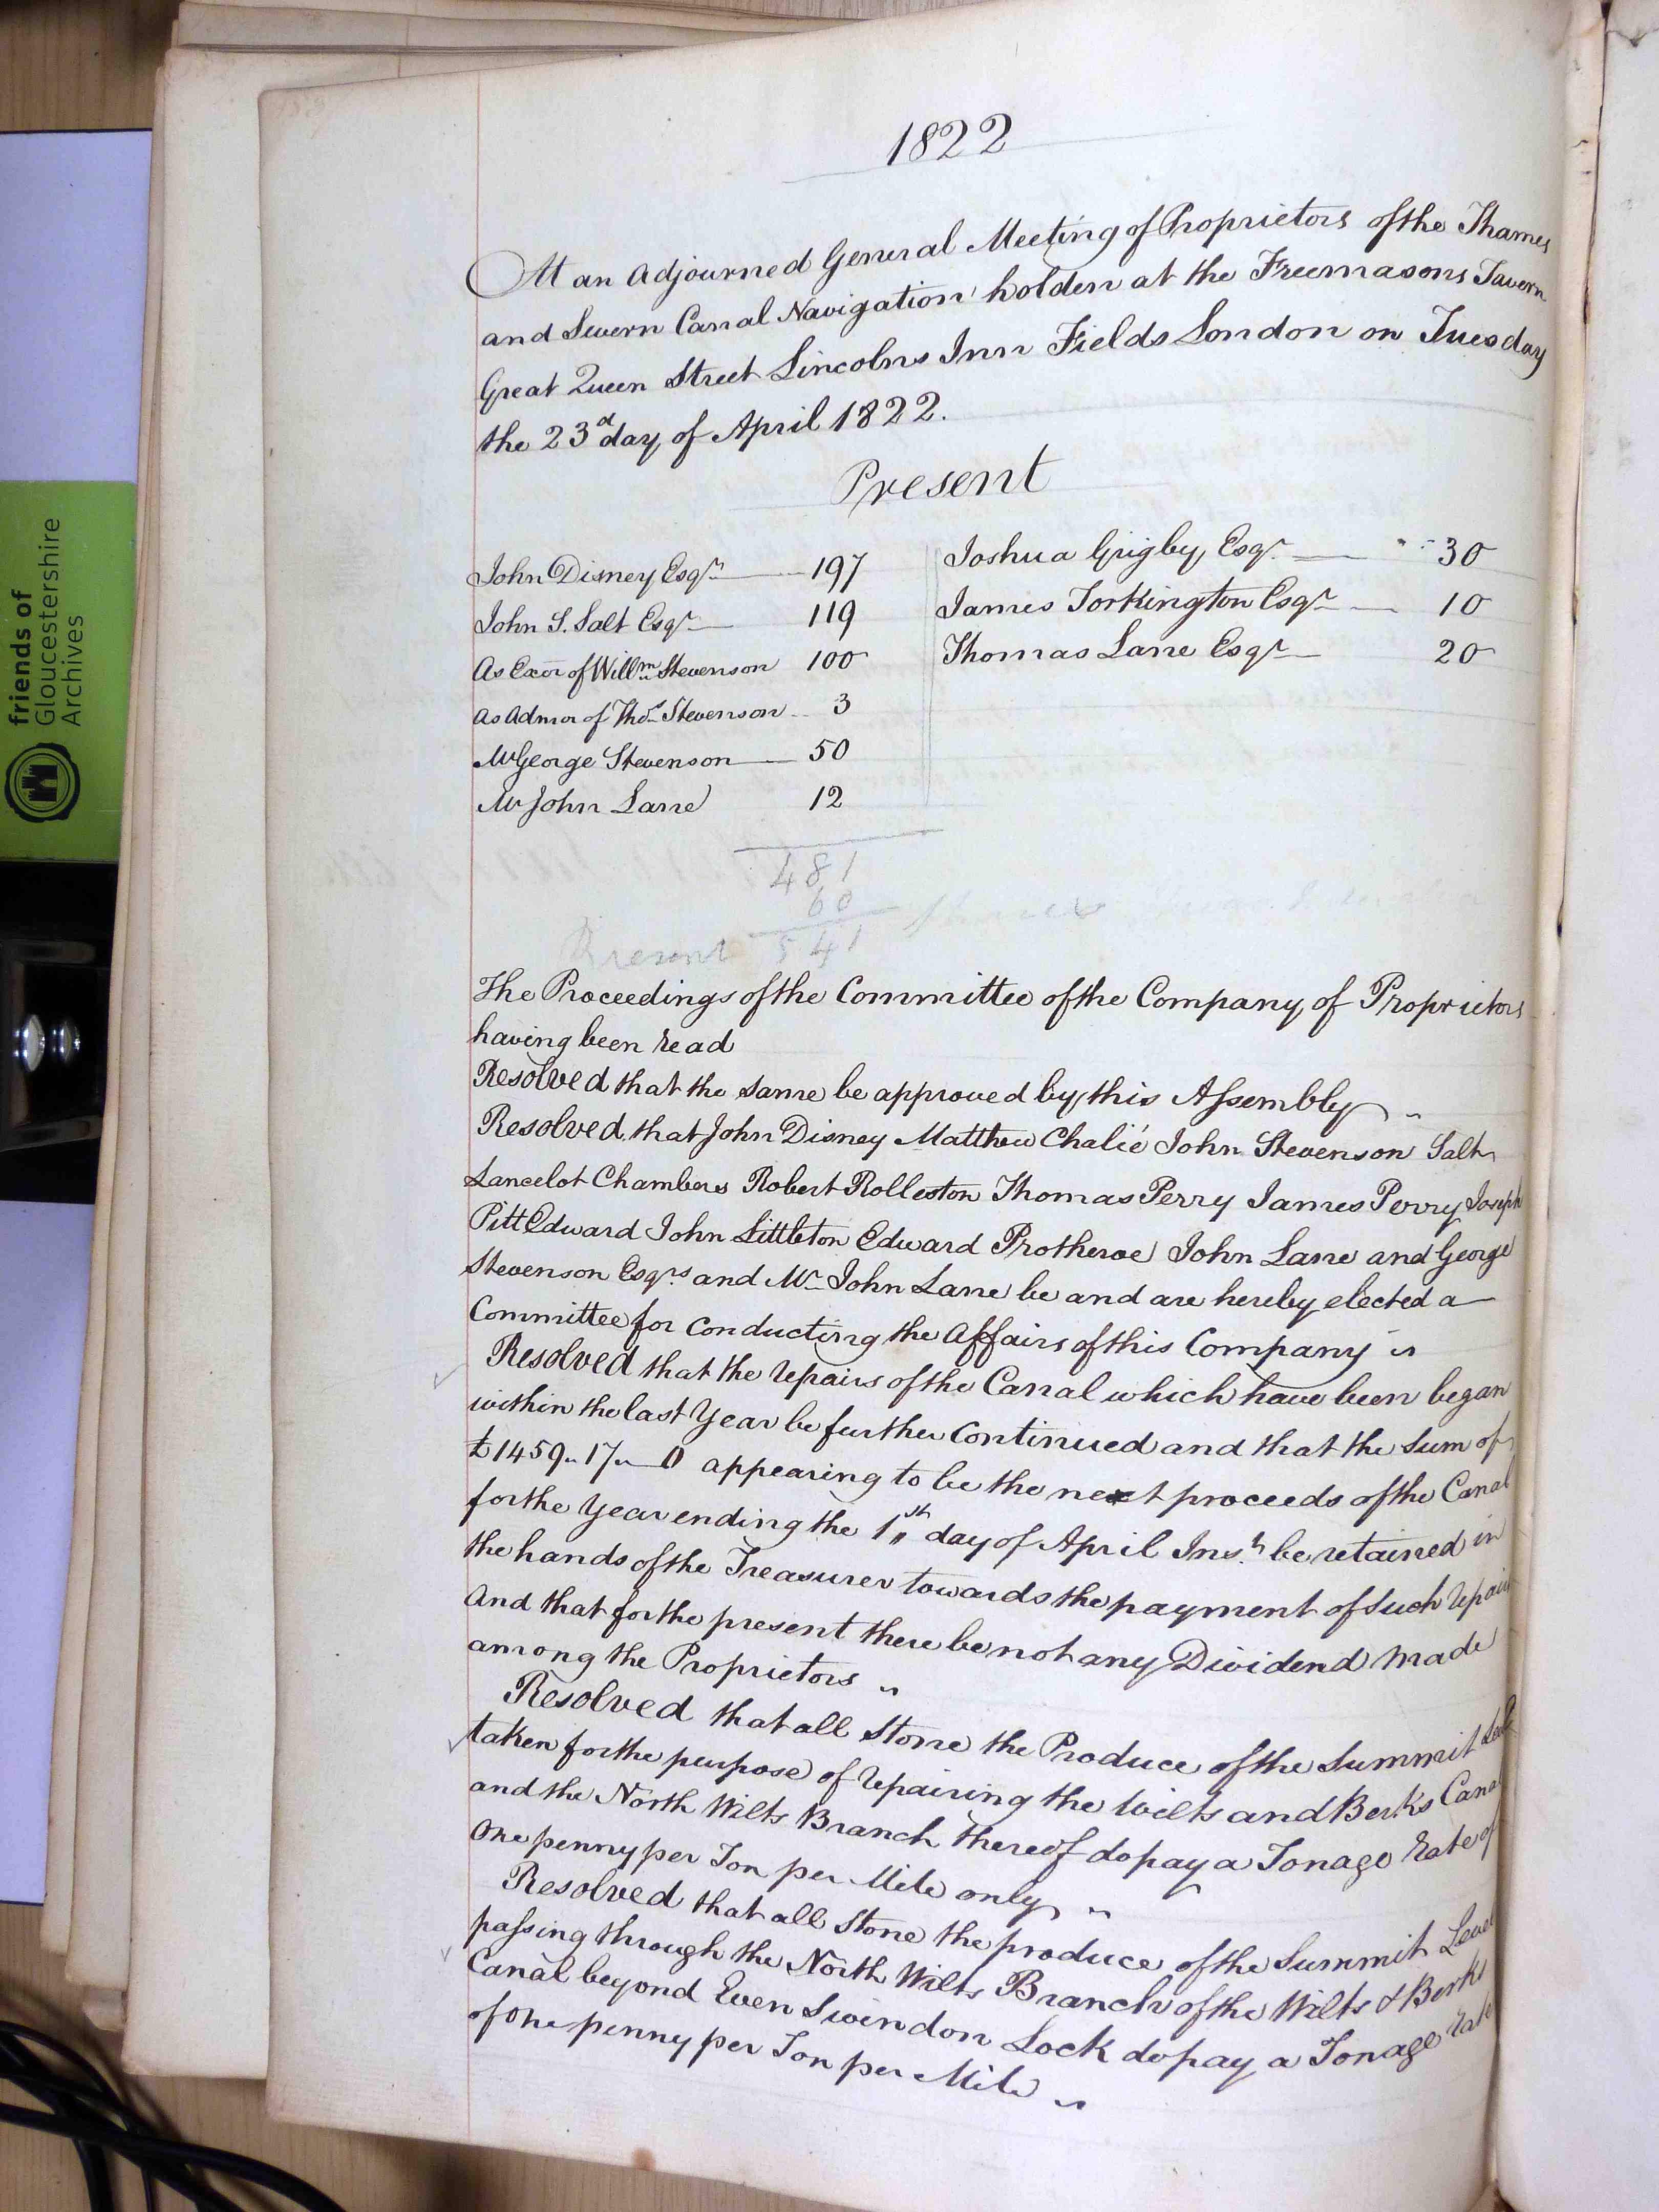 friends of
Gloucestershire
Archives
1822
At an Adjourned General Meeting of Proprietors of the Thames
and Severn Canal Navigation holden at the Freemasons Tavern
Great Queen Street Lincolns Inn Fields London on Tuesday
the 23d day of April 1822.
Present
John Disney Esqr 197
John S. Salt Esqr 119
As Exor of Willm Stevenson 100
As Admor of Thos Stevenson 3
Mr George Stevenson 50
Mr John Lane 12
Joshua Grigby Esqr 30
James Torkington Esqr 10
Thomas Lane Esqr 20
481
60
Present 541
The Proceedings of the Committee of the Company of Proprietors
having been read
Resolved that the same be approved by this Assembly
Resolved that John Disney Matthew Chalié John Stevenson Salt
Lancelot Chambers Robert Rolleston Thomas Perry James Perry Joseph
Pitt Edward John Littleton Edward Protheroe John Lane and George
Stevenson Esqrs and Mr John Lane be and are hereby elected a
Committee for conducting the Affairs of this Company
Resolved that the repairs of the Canal which have been began
within the last Year be further Continued and that the Sum of
£1459 17 0 appearing to be the next proceeds of the Canal
for the Year ending the 1th day of April Inst be retained in
the hands of the Treasurer towards the payment of such repairs
And that for the present there be not any Dividend made
among the Proprietors
Resolved that all Stone the Produce of the Summit Level
taken for the purpose of repairing the Wilts and Berks Canal
and the North Wilts Branch thereof do pay a Tonage rate of
One penny per Ton per Mile only
Resolved that all Stone the produce of the Summit Level
passing through the North Wilts Branch of the Wilts & Berks
Canal beyond Even Swindon Lock do pay a Tonage rate
of One penny per Ton per Mile